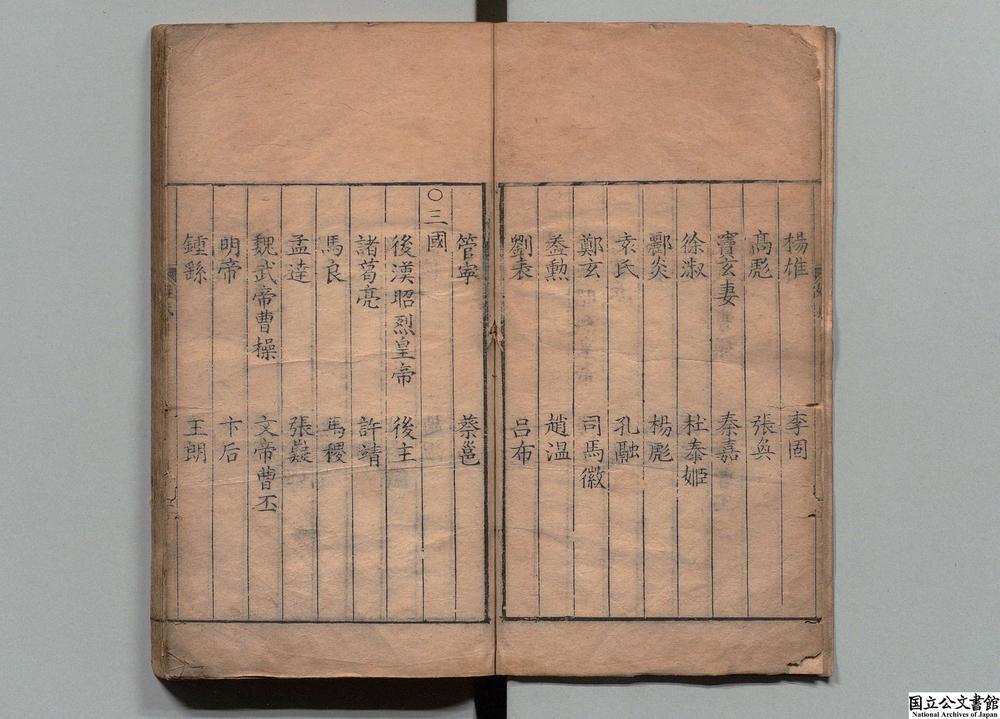 楊雄 李固
高彪 張奐
竇玄妻 秦嘉
徐淑 杜泰姬
酈炎 楊彪
袁氏 孔融
鄭玄 司馬徽
蓋勲 趙温
劉表 吕布
管寧 蔡邕
〇三國
後漢昭烈皇帝 後主
諸葛亮 許靖
馬良 馬稷
孟達 張嶷
魏武帝曹操 文帝曹丕
明帝 卞后
鍾繇 王朗
国立公文書館
National Archives of Japan